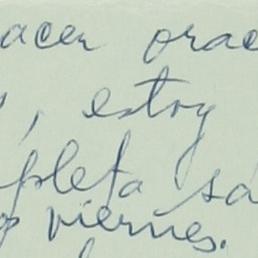 acer orac
, estoy
pleta sa
viernes.